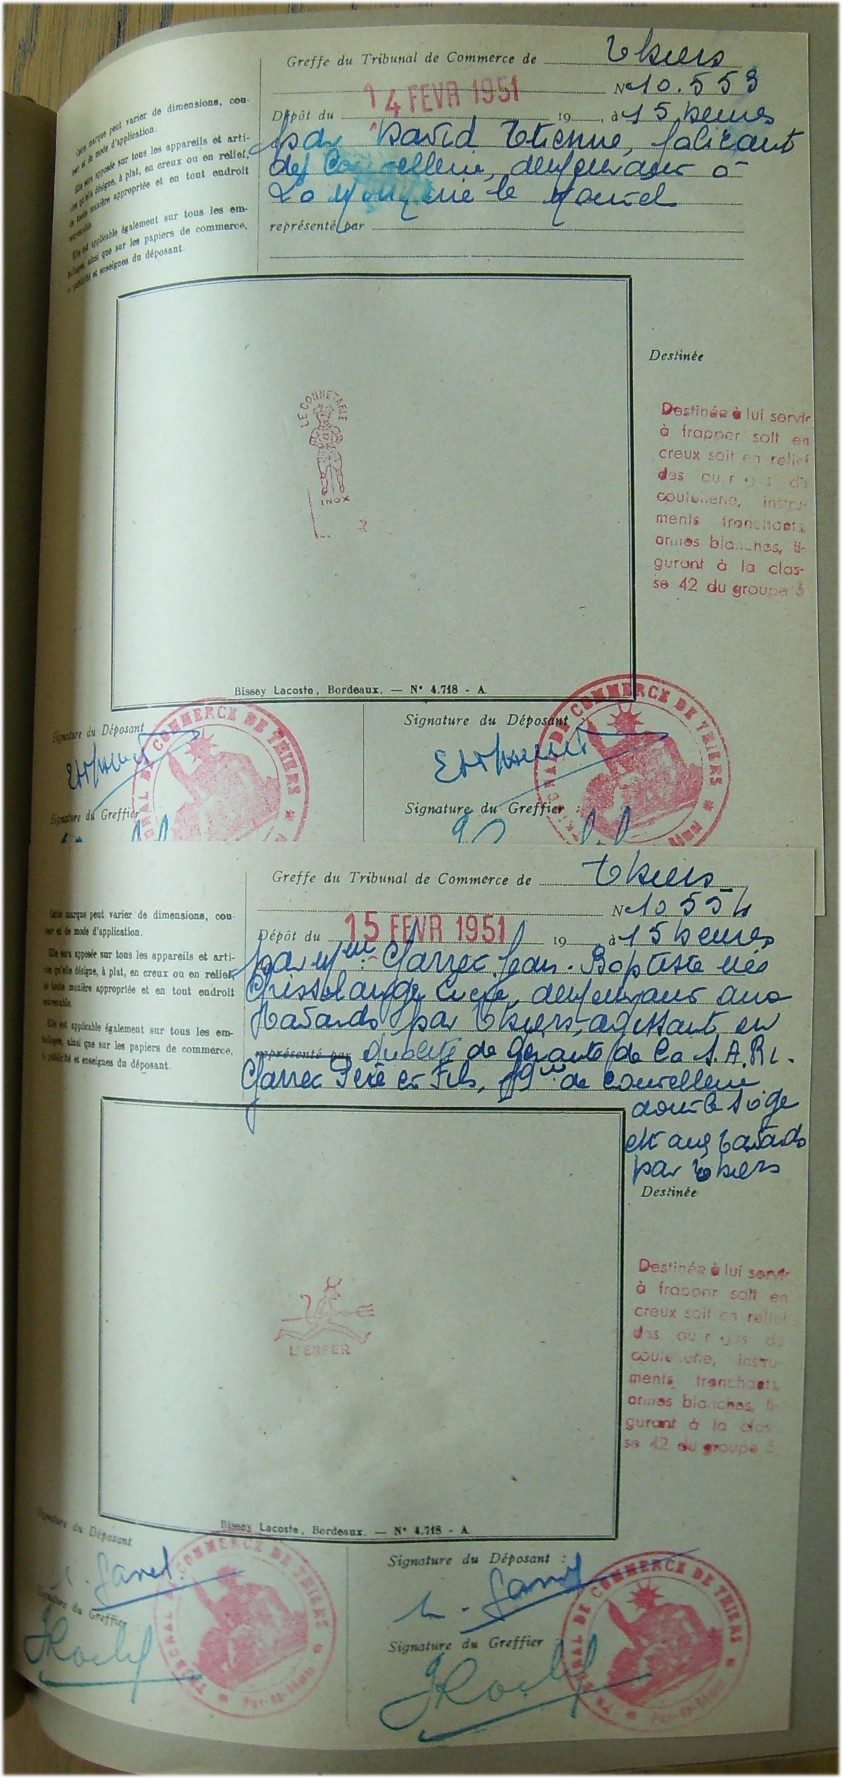 Greffe du Tribunal de Commerce de Thiers
N° 10.553
14 FEVR 1951
Dépôt du 19 , à 15 heures
par David Etienne, fabricant
de Coutellerie, demeurant à
La Monnerie le Montel
représenté par
Cette marque peut varier de dimensions, cou-
leur et de mode d'application.
Elle sera apposée sur tous les appareils et arti-
cles qu'elle désigne, à plat, en creux ou en relief,
de toute manière appropriée et en tout endroit
convenable.
Elle est applicable également sur tous les em-
ballages, ainsi que sur les papiers de commerce,
la publicité et enseignes du déposant.
LE CONNETABLE
INOX
Destinée
Destinée à lui servir
à frapper soit en
creux soit en relief
des ouvrages de
coutellerie, instru-
ments tranchants,
armes blanches, fi-
gurant à la clas-
se 42 du groupe 5
Bissey Lacoste, Bordeaux. — N° 4.718 - A
Signature du Déposant
Signature du Greffier
TRIBUNAL DE COMMERCE DE THIERS
Signature du Déposant :
Signature du Greffier :
TRIBUNAL DE COMMERCE DE THIERS
Greffe du Tribunal de Commerce de Thiers
N° 10 554
15 FEVR 1951
Dépôt du 19 à 15 heures
par Mme Garret Jean-Baptiste née
demeurant aux
par Thiers, agissant en
représenté par qualité de Gérante de la S.A.R.L.
Garret Père et Fils, de coutellerie
dont le siège
est aux
par Thiers
Cette marque peut varier de dimensions, cou-
leur et de mode d'application.
Elle sera apposée sur tous les appareils et arti-
cles qu'elle désigne, à plat, en creux ou en relief,
de toute manière appropriée et en tout endroit
convenable.
Elle est applicable également sur tous les em-
ballages, ainsi que sur les papiers de commerce,
la publicité et enseignes du déposant.
L'ENFER
Destinée
Destinée à lui servir
à frapper soit en
creux soit en relief
des ouvrages de
coutellerie, instru-
ments tranchants,
armes blanches, fi-
gurant à la clas-
se 42 du groupe 5
Bissey Lacoste, Bordeaux. — N° 4.718 - A
Signature du Déposant
Signature du Greffier
TRIBUNAL DE COMMERCE DE THIERS
Puy-de-Dôme
Signature du Déposant :
Signature du Greffier
TRIBUNAL DE COMMERCE DE THIERS
Puy-de-Dôme